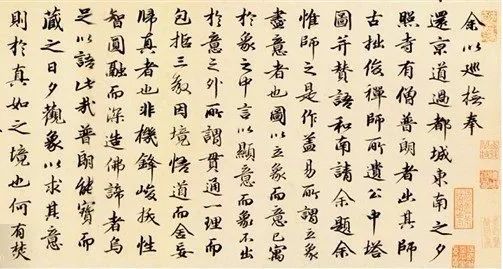 余以巡撫奉
還京道過都城東南之夕
照寺有僧普朗者出其師
古拙俊禪師所遺公中塔
圖并贊語和南請余題余
惟師之是作蓋易所謂立象
盡意者也圖以立象而意已寓
於象之中言以顯意而象不出
於意之外所謂貫通一理而
包括三教因境悟道而舍妄
歸真者也非機鋒峻拔性
智圓融而深造佛諦者烏
足以語此哉普朗能寶而
藏之日夕觀象以求其意
則於真如之境也何有焚